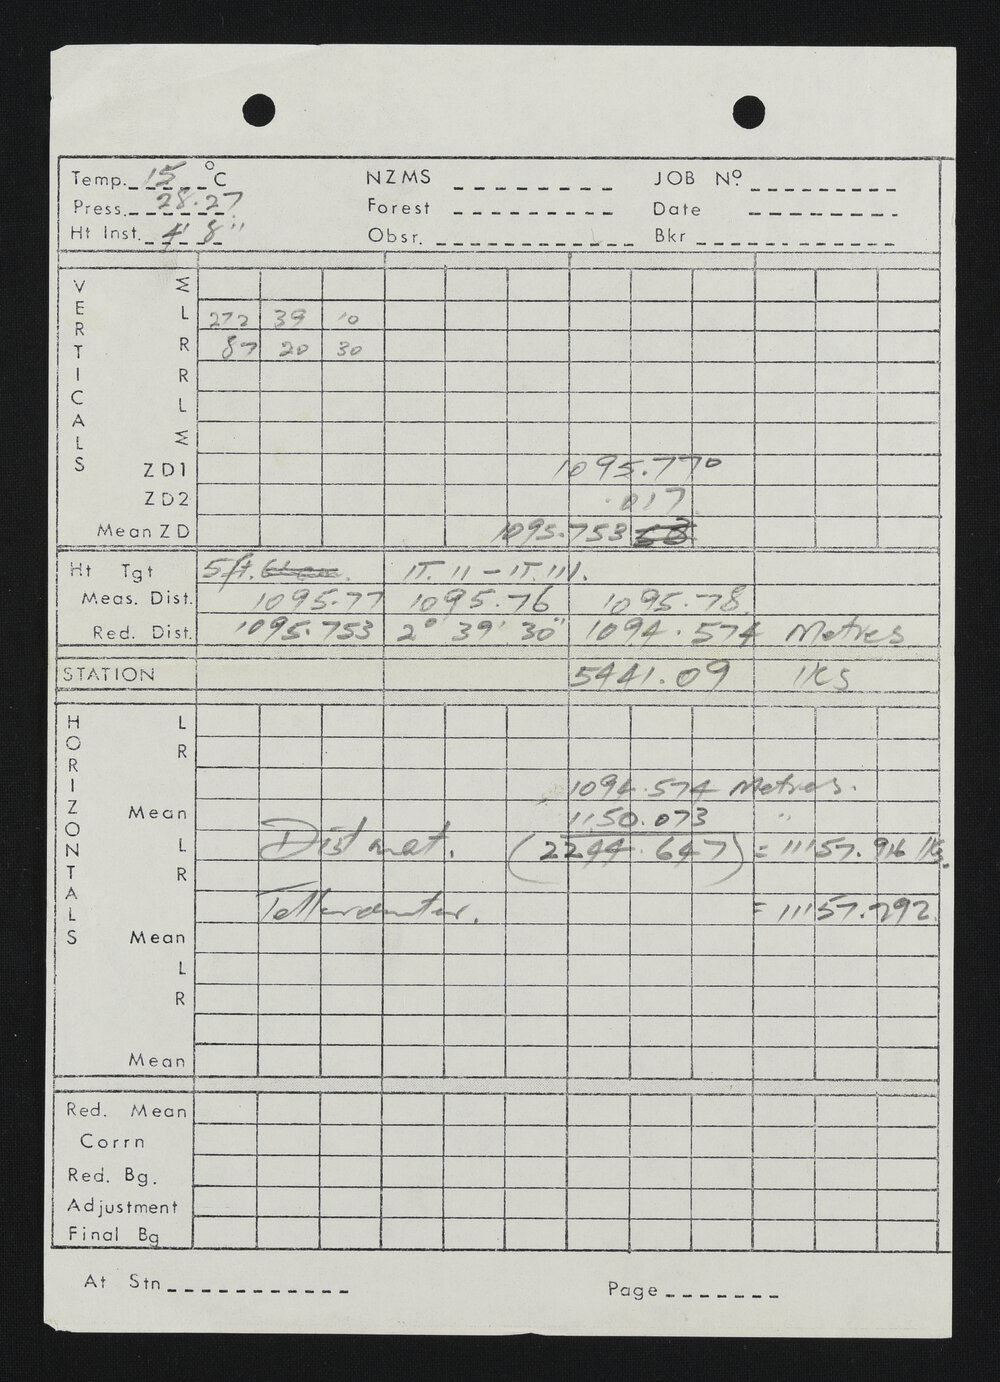 Temp. 15 °C NZMS JOB Nº
Press. 28.27 Forest Date
Ht Inst. 4' 8" Obsr. Bkr
VERTICALS
Σ
L 272 39 10
R 87 20 30
R
L
Σ
ZD1 1095.770
ZD2 .017
Mean ZD 1095.753
Ht Tgt 5ft. IT. II - IT. III.
Meas. Dist. 1095.77 1095.76 1095.78
Red. Dist. 1095.753 2° 39' 30" 1094.574 Metres
STATION 5441.09 lks
HORIZONTALS
L
R
1094.574 Metres.
Mean 1150.073 "
L Distomat. (2244.647) = 11157.916 lks.
R
Tellurometer. = 11157.292
Mean
L
R
Mean
Red. Mean
Corrn
Red. Bg.
Adjustment
Final Bg
At Stn Page